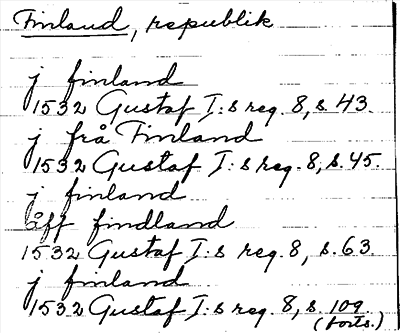 Finland, republik
j finland
1532 Gustaf I:s reg. 8, s. 43.
j från Finland
1532 Gustaf I:s reg. 8, s. 45.
j finland
åff findland
1532 Gustaf I:s reg. 8, s. 63.
j finland
1532 Gustaf I:s reg. 8, s. 109
(forts.)